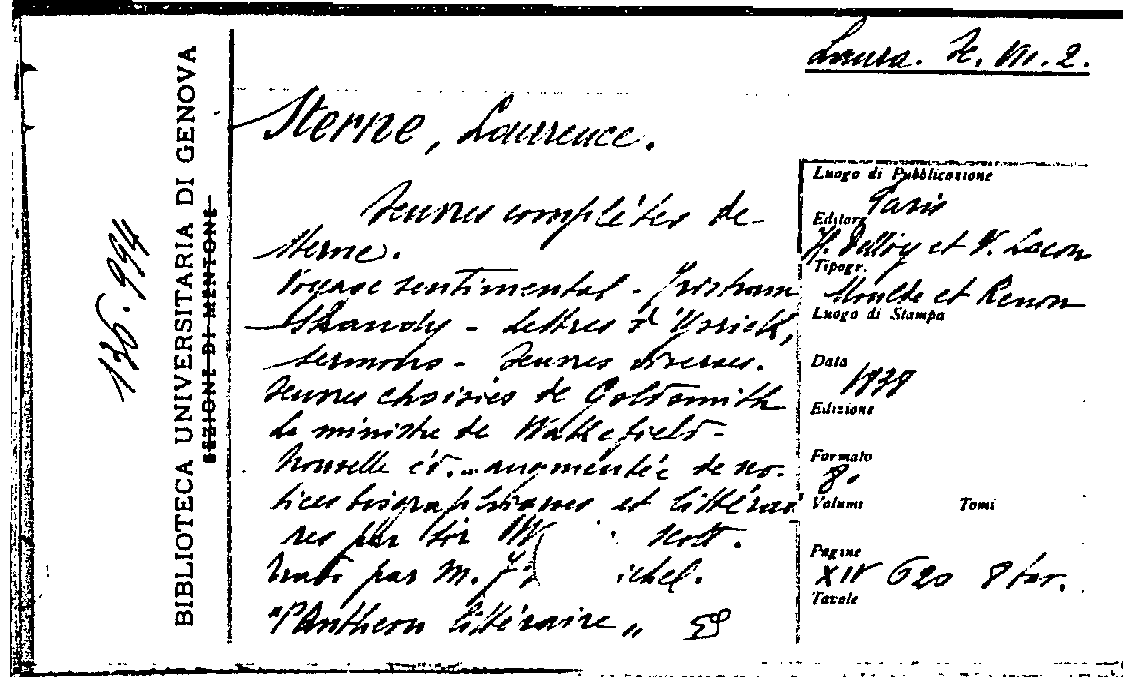 Laura. X. VII. 2.
BIBLIOTECA UNIVERSITARIA DI GENOVA
SEZIONE DI MENTONE
136.994
Sterne, Laurence.
Œuvres complètes de
Sterne.
Voyage sentimental - Tristram
Shandy - Lettres d'Yorick,
sermons - Œuvres diverses.
Œuvres choisies de Goldsmith
Le ministre de Wakefield -
Nouvelle éd. augmentée de no-
tices biographiques et littérai
res par Sir W Scott.
trad. par M. F ichel.
"Panthéon littéraire"
Luogo di Pubblicazione
Paris
Editore
H. Delloy et V. Lecou
Tipogr.
Moulde et Renou
Luogo di Stampa
Data
1838
Edizione
Formato
8°
Volumi Tomi
Pagine
XIV 620 8 tav.
Tavole